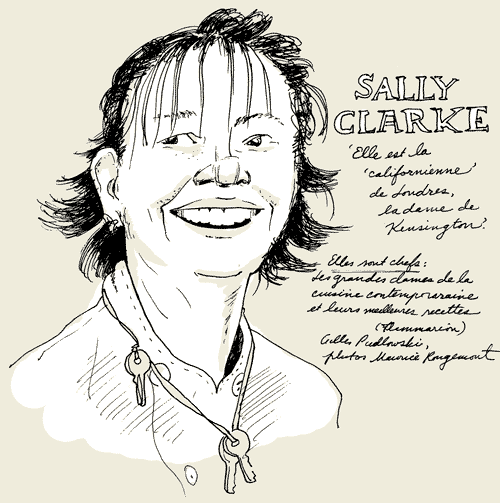 SALLY
CLARKE
'Elle est la
'californienne'
de Londres,
la dame de
Kensington'.
Elles sont chefs:
Les grandes dames de la
cuisine contemporaraine
et leurs meilleures recettes
(Flammarion)
Gilles Pudlowski,
photos Maurice Rougemont